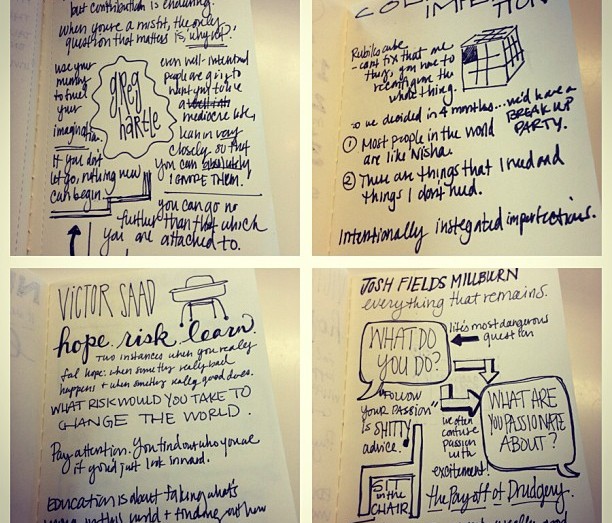 but contribution is enduring.
when you're a misfit, the only
question that matters is, "why not?"
use your
money
to fuel
your
imagination.
greg
hartle
even well-intentioned
people are going to
want you to live
a
mediocre life,
lean in very
closely so that
you can absolutely
IGNORE THEM.
If you don't
let go, nothing new
can begin.
you can go no
further than that which
you are attached to.
Rubiks cube
- can't fix that one
thing, you have to
reconfigure the
whole thing.
so we decided in 4 months... we'd have a
BREAK UP
PARTY.
① Most people in the world
are like Nisha.
② There are things that I need and
things I don't need.
Intentionally instegnated imperfections.
VICTOR SAAD
hope. risk. learn.
Two instances when you really
feel hope: when something really bad
happens + when something really good does.
WHAT RISK WOULD YOU TAKE TO
CHANGE THE WORLD.
Pay attention. You find out who you are
if you'd just look inward.
Education is about taking what's
in this world + finding out how
JOSH FIELDS MILLBURN
everything that remains.
WHAT DO
YOU DO?
life's most dangerous
question
"FOLLOW
YOUR PASSION"
is SHITTY
advice.
we often
confuse
passion
with
excitement!
WHAT ARE
YOU PASSIONATE
ABOUT?
SIT
in the
CHAIR
the Pay off of Drudgery.